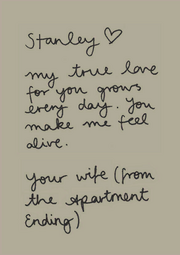 Stanley ♡
my true love
for you grows
every day. You
make me feel
alive.
Your wife (from
the Apartment
Ending)